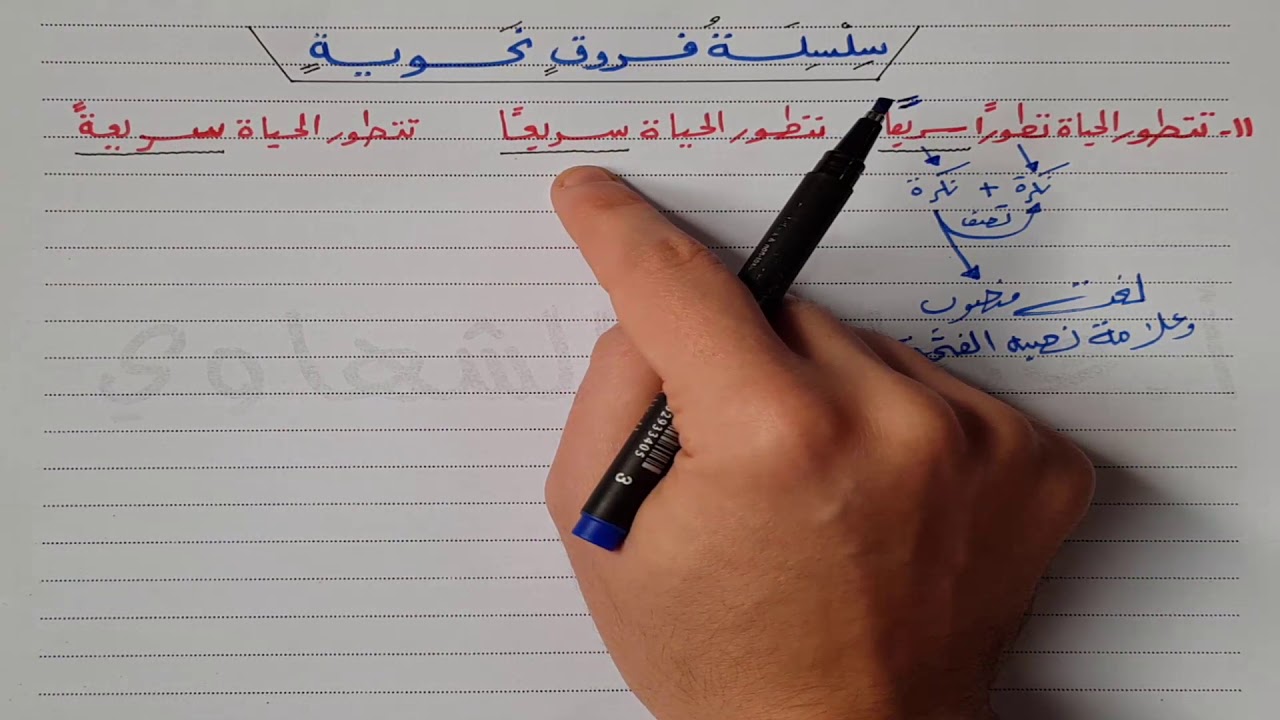 سِلْسِلَةُ فروقٍ نَحويةٍ
١١- تتطور الحياة تطورًا سريعًا تتطور الحياة سريعًا تتطور الحياة سريعةً
نكرة + نكرة
تصف
نعت منصوب
وعلامة نصبه الفتحة
الشعراوي
2933405
3